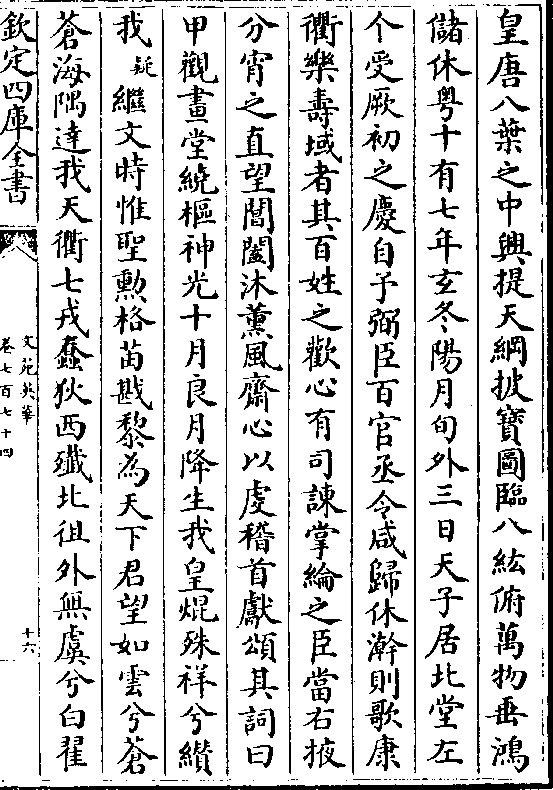 皇唐八葉之中興提天綱披寳圖臨八紘俯萬物垂鴻
儲休粤十有七年玄冬陽月旬外三日天子居北堂左
个受厥初之慶自予弼臣百官丞令咸歸休澣則歌康
衢樂壽域者其百姓之歡心有司諫掌綸之臣當右掖
分宵之直望閶闔沐薫風齋心以虔稽首獻頌其詞曰
甲觀畫堂繞樞神光十月良月降生我皇焜殊祥兮纉
我疑繼文時惟聖勲格苗戡黎為天下君望如雲兮蒼
蒼海隅達我天衢七戎蠢狄西殱北徂外無虞兮白翟
欽定四庫全書
文苑英華
卷七百七十四
十六